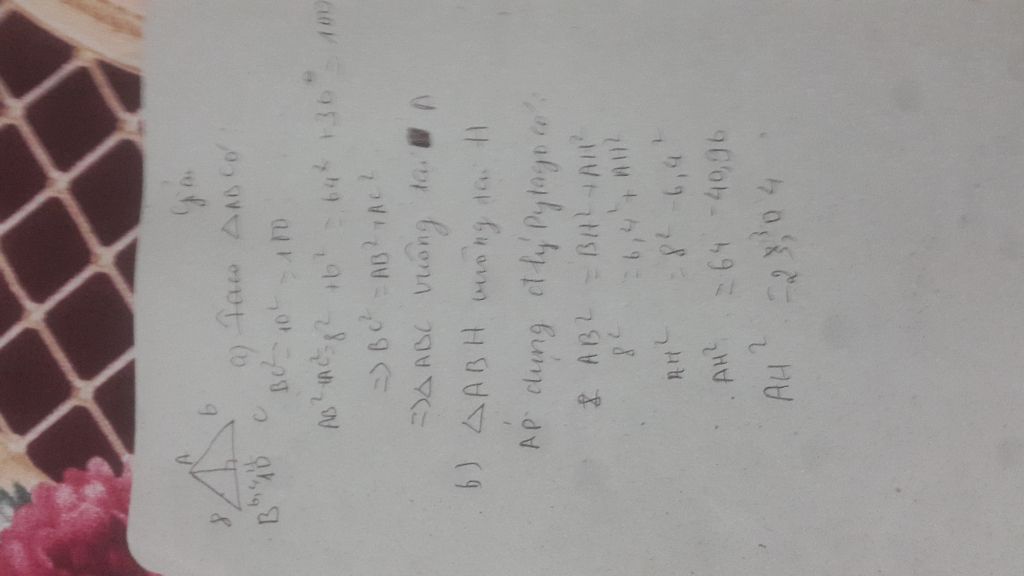 Giải
A
8
6
B
6,4
10
C
a) Trong △ABC có:
BC² = 10² = 100
AB² + AC² = 8² + 6² = 64 + 36 = 100
=> BC² = AB² + AC²
=> △ABC vuông tại A
b) △ABH vuông tại H
Áp dụng đlý Pytago có:
AB² = BH² + AH²
8² = 6,4² + AH²
AH² = 8² - 6,4²
AH² = 64 - 40,96
AH² = 23,04